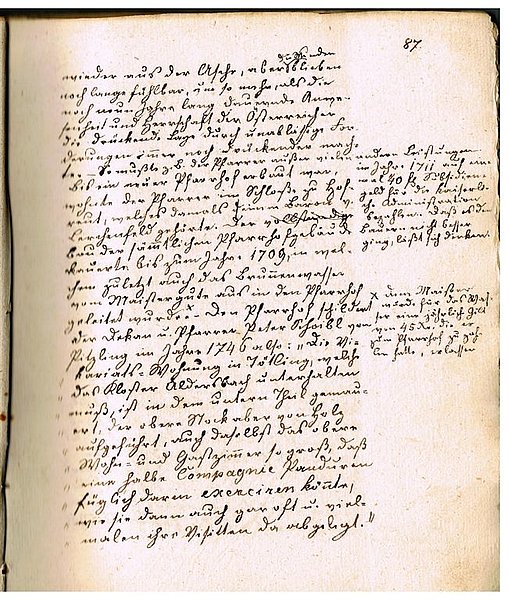 87.
wieder aus der Asche, aber es blieben
noch lange fühlbar, um so mehr, als die
noch neun Jahre lang dauernde Anwe-
senheit und Herrschaft der Österreicher
die drückende Lage durch unablässige For-
derungen immer noch drückender mach-
te. – So mußte z.B. der Pfarrer außer vielen
bis ein neuer Pfarrhof erbaut war,
wohnte der Pfarrer im Schloße zu Hof-
reut, welches damals einem Baron v.
Lerchenfeld gehörte. Der vollständige
Bau der sämtlichen Pfarrhofgebäude
dauerte bis zum Jahre 1709, in wel-
chem zuletzt auch das Brunnenwasser
vom Maistergute aus in den Pfarrhof
geleitet wurde. x Den Pfarrhof schildert
der Dekan u. Pfarrer Peter Schaibl von
Pitzling im Jahre 1746 also: „Die Vi-
kariats-Wohnung in Tötling, welche
das Kloster Aldersbach unterhalten
muß, ist in dem untern Theil gemau-
ert, der obere Stock aber von Holz
aufgeführt, auch daselbst das obere
Wohn- und Gastzimmer so groß, daß
eine halbe Compagnie Panduren
füglich darin exerciren könnte,
wie sie dann auch gar oft u. viel-
malen ihre Visitten da abgelegt."
andern Leistungen
im Jahre 1711 auch ein-
mal 40 fl Subsidien-
geld für die kaiserli-
che Administration
bezahlen. Daß es den
Bauern nicht besser
ging, läßt sich denken.
x dem Maister
wurde für das Was-
ser eine jährlich Gilt
von 45 Kr. die er
zum Pfarrhof zu zah-
len hatte, erlassen